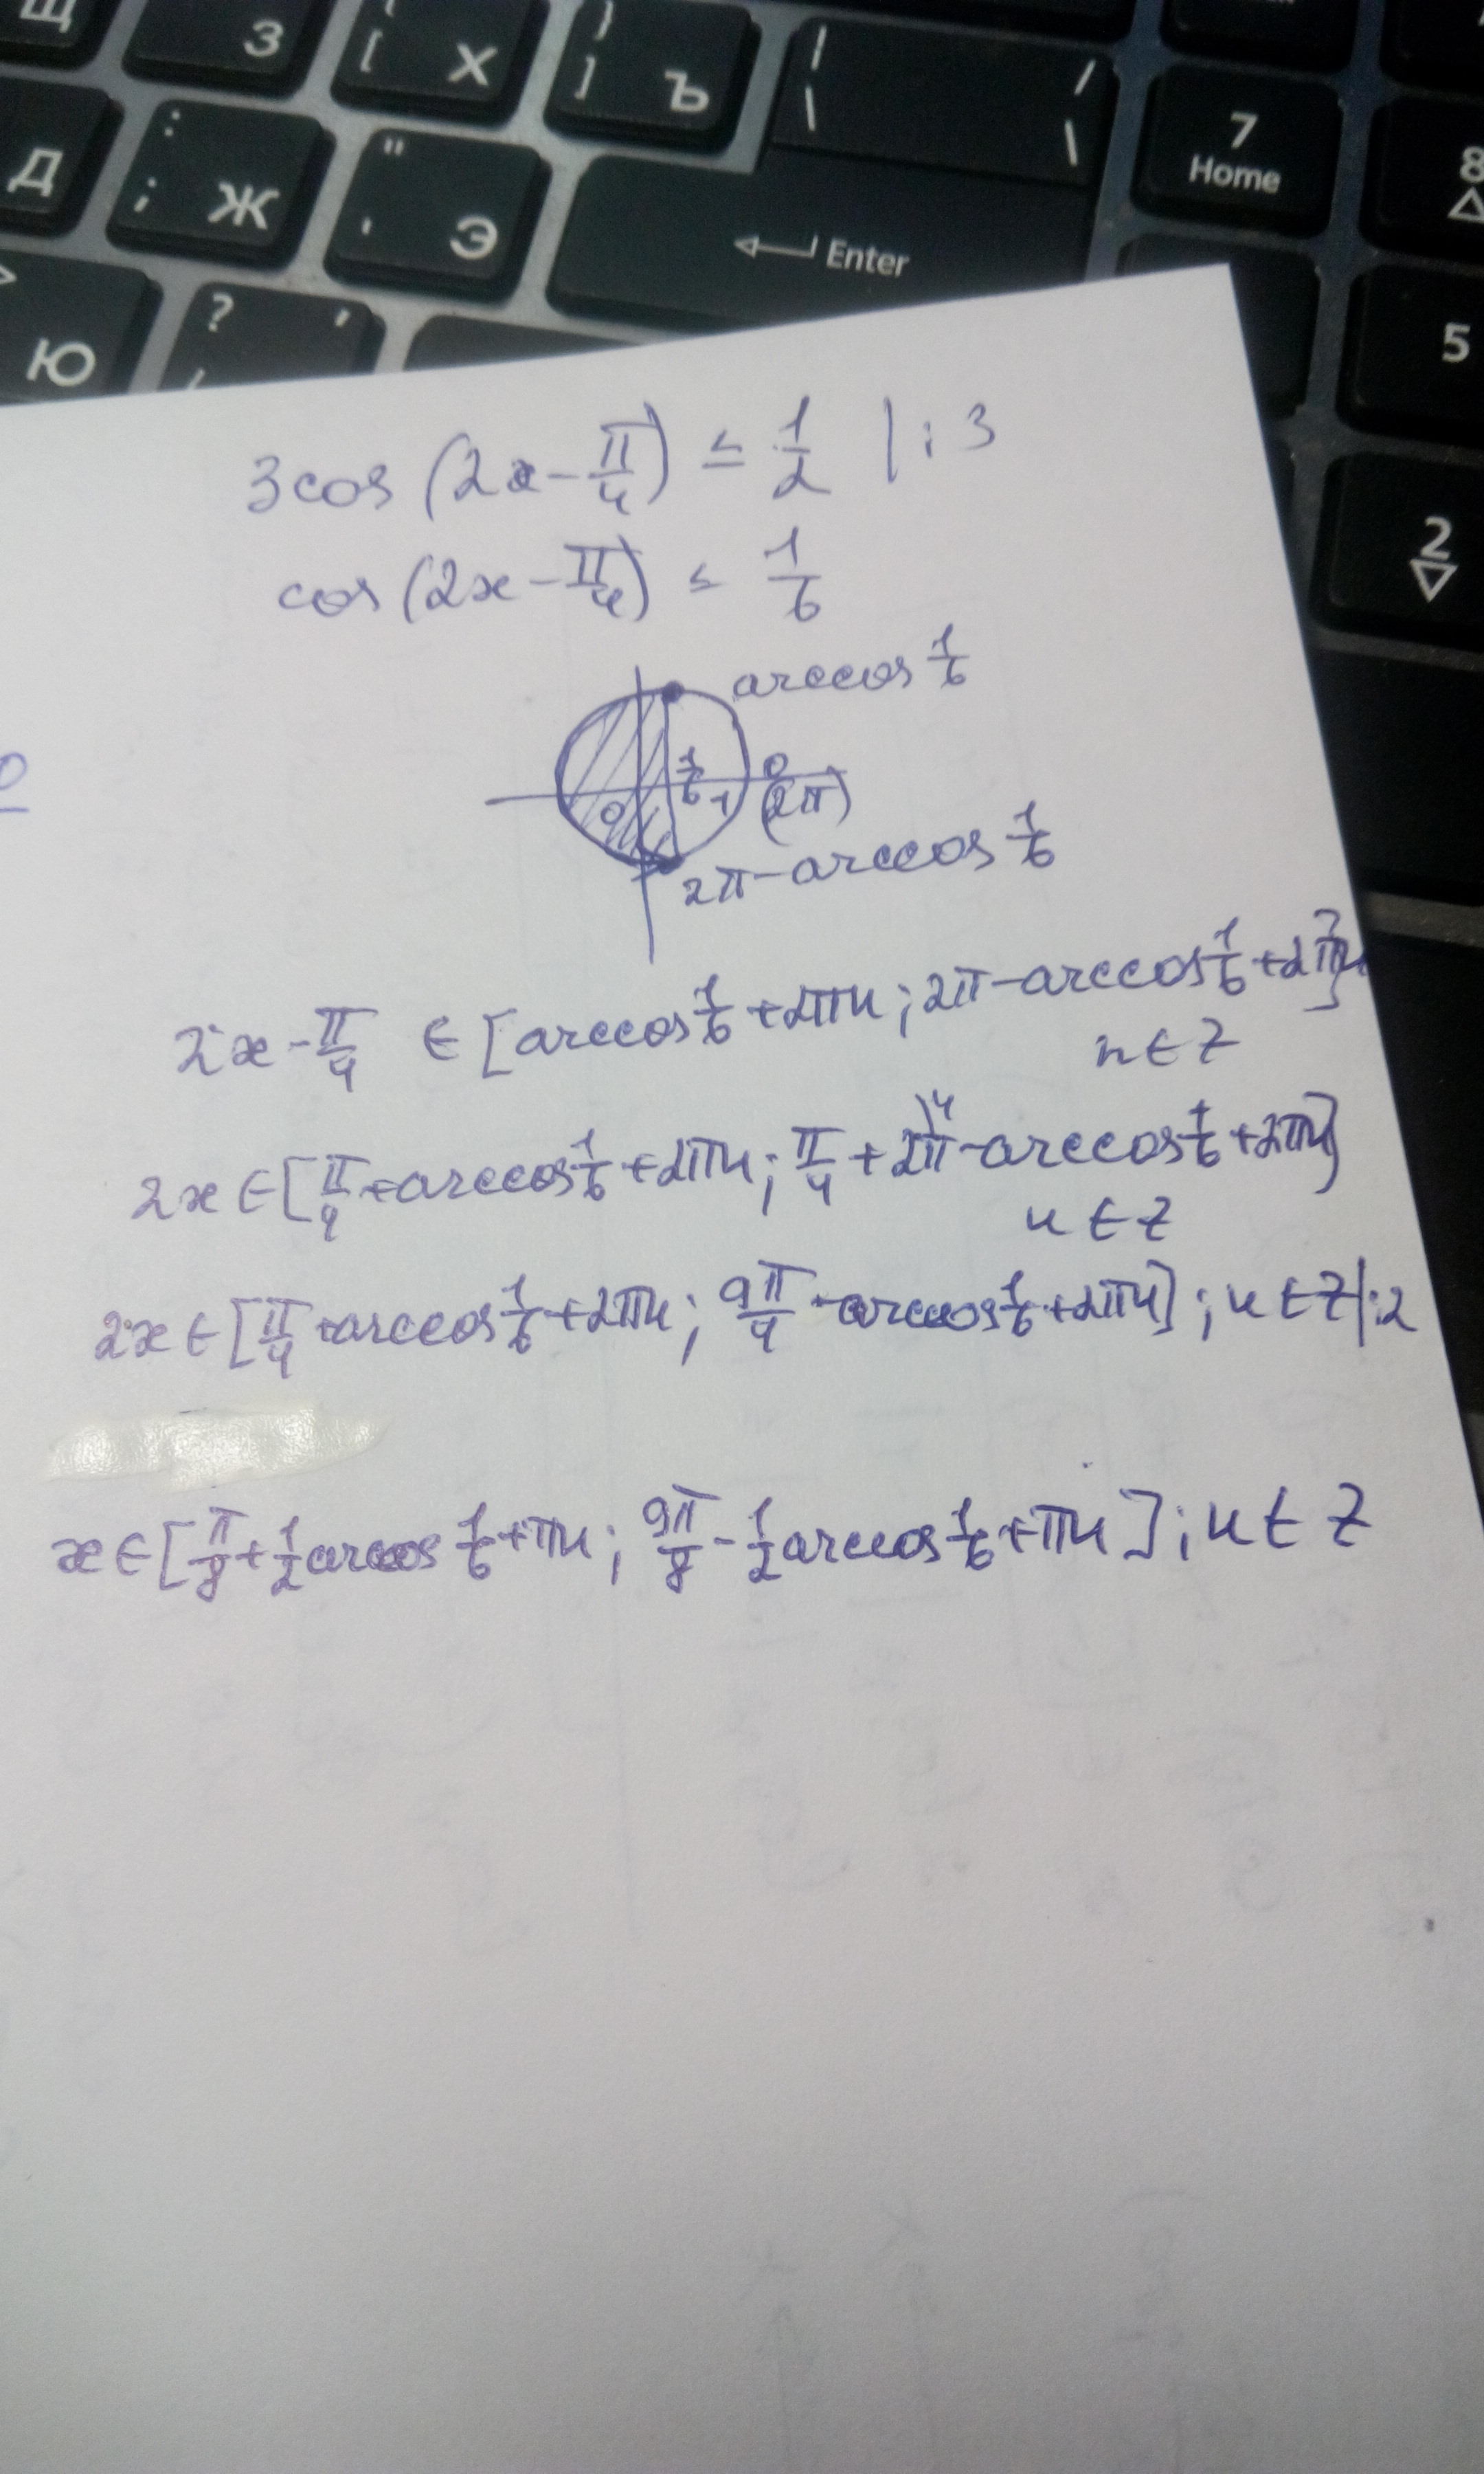 Щ З [ Х } ] Ъ | \ / \ 7 Home 8
Д : ; Ж " ' Э Enter 5
Ю ? , 2
3cos(2x-π/4) ≤ 1/2 |:3
cos(2x-π/4) ≤ 1/6
arccos 1/6
1/6 0
0 1 (2π)
2π-arccos 1/6
2x-π/4 ∈ [arccos 1/6+2πn; 2π-arccos 1/6+2πn]
n∈Z
2x∈[π/4+arccos 1/6+2πn; π/4+2π\4-arccos 1/6+2πn]
n∈Z
2x∈[π/4+arccos 1/6+2πn; 9π/4-arccos 1/6+2πn]; n∈Z|:2
x∈[π/8+1/2arccos 1/6+πn; 9π/8-1/2arccos 1/6+πn]; n∈Z